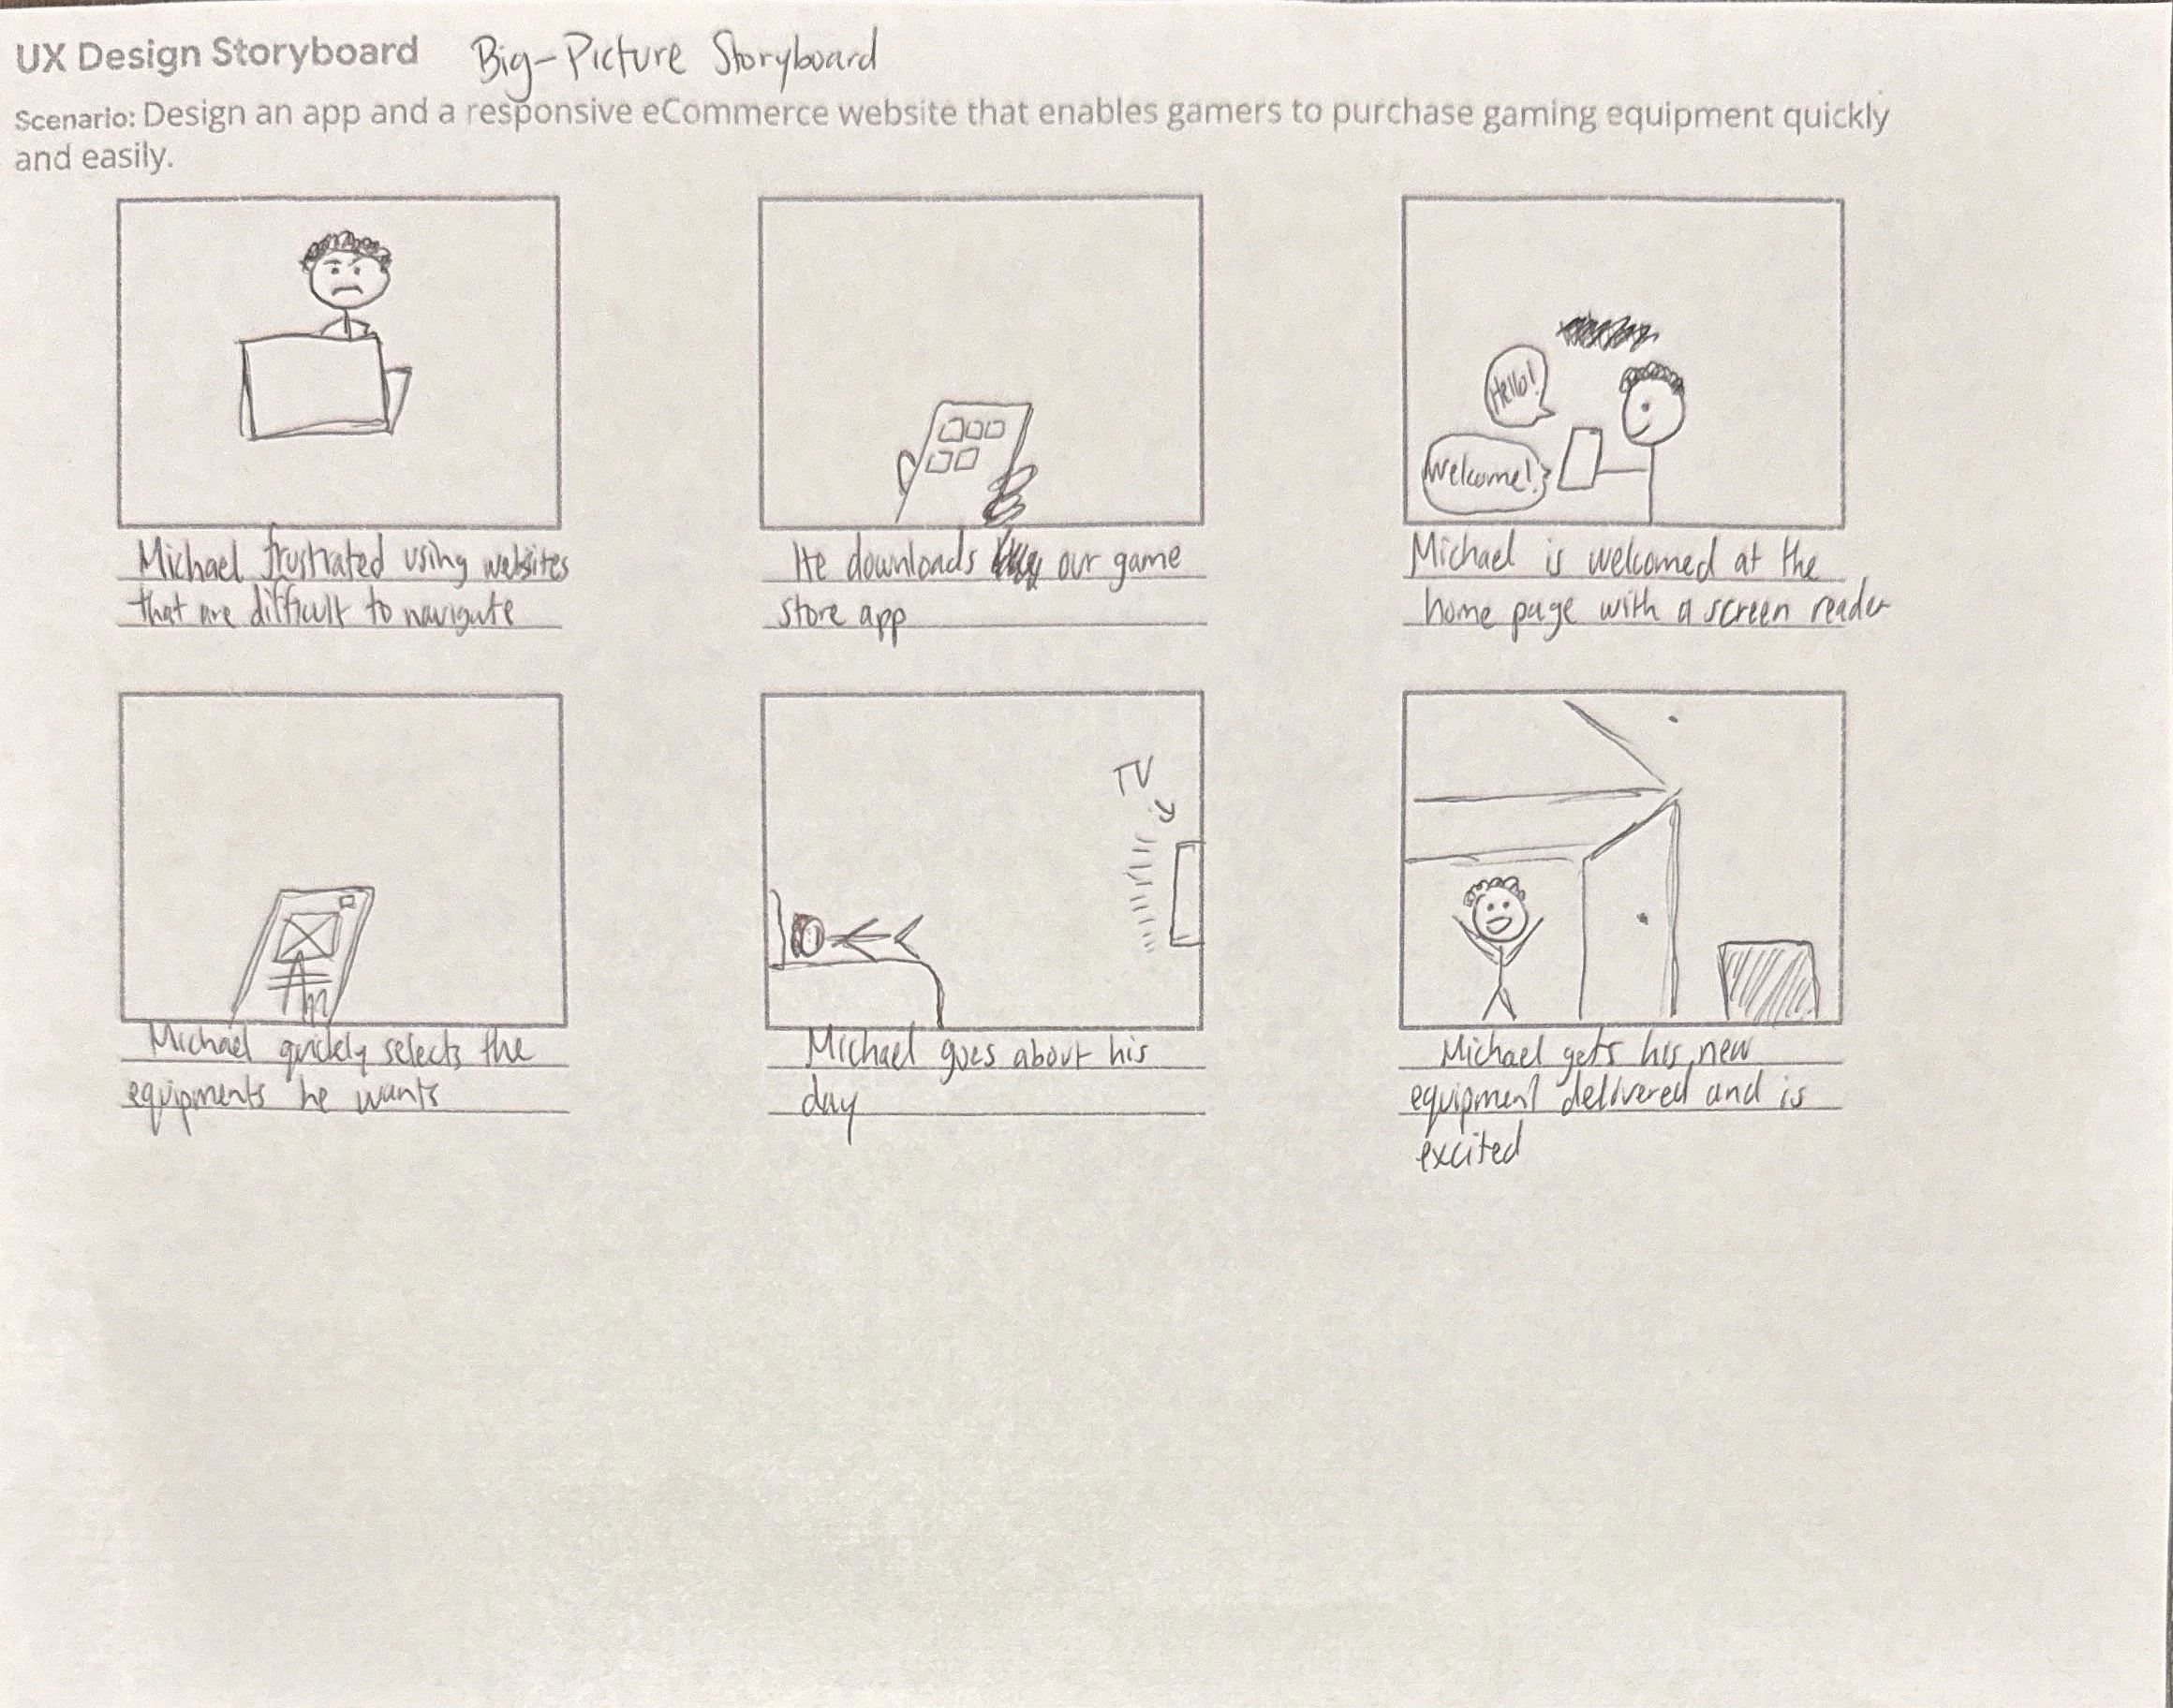 UX Design Storyboard Big-Picture Storyboard
Scenario: Design an app and a responsive eCommerce website that enables gamers to purchase gaming equipment quickly
and easily.
Hello!
Welcome!
Michael frustrated using websites
that are difficult to navigate
He downloads our game
store app
Michael is welcomed at the
home page with a screen reader
TV
Michael quickly selects the
equipments he wants
Michael goes about his
day
Michael gets his new
equipment delivered and is
excited